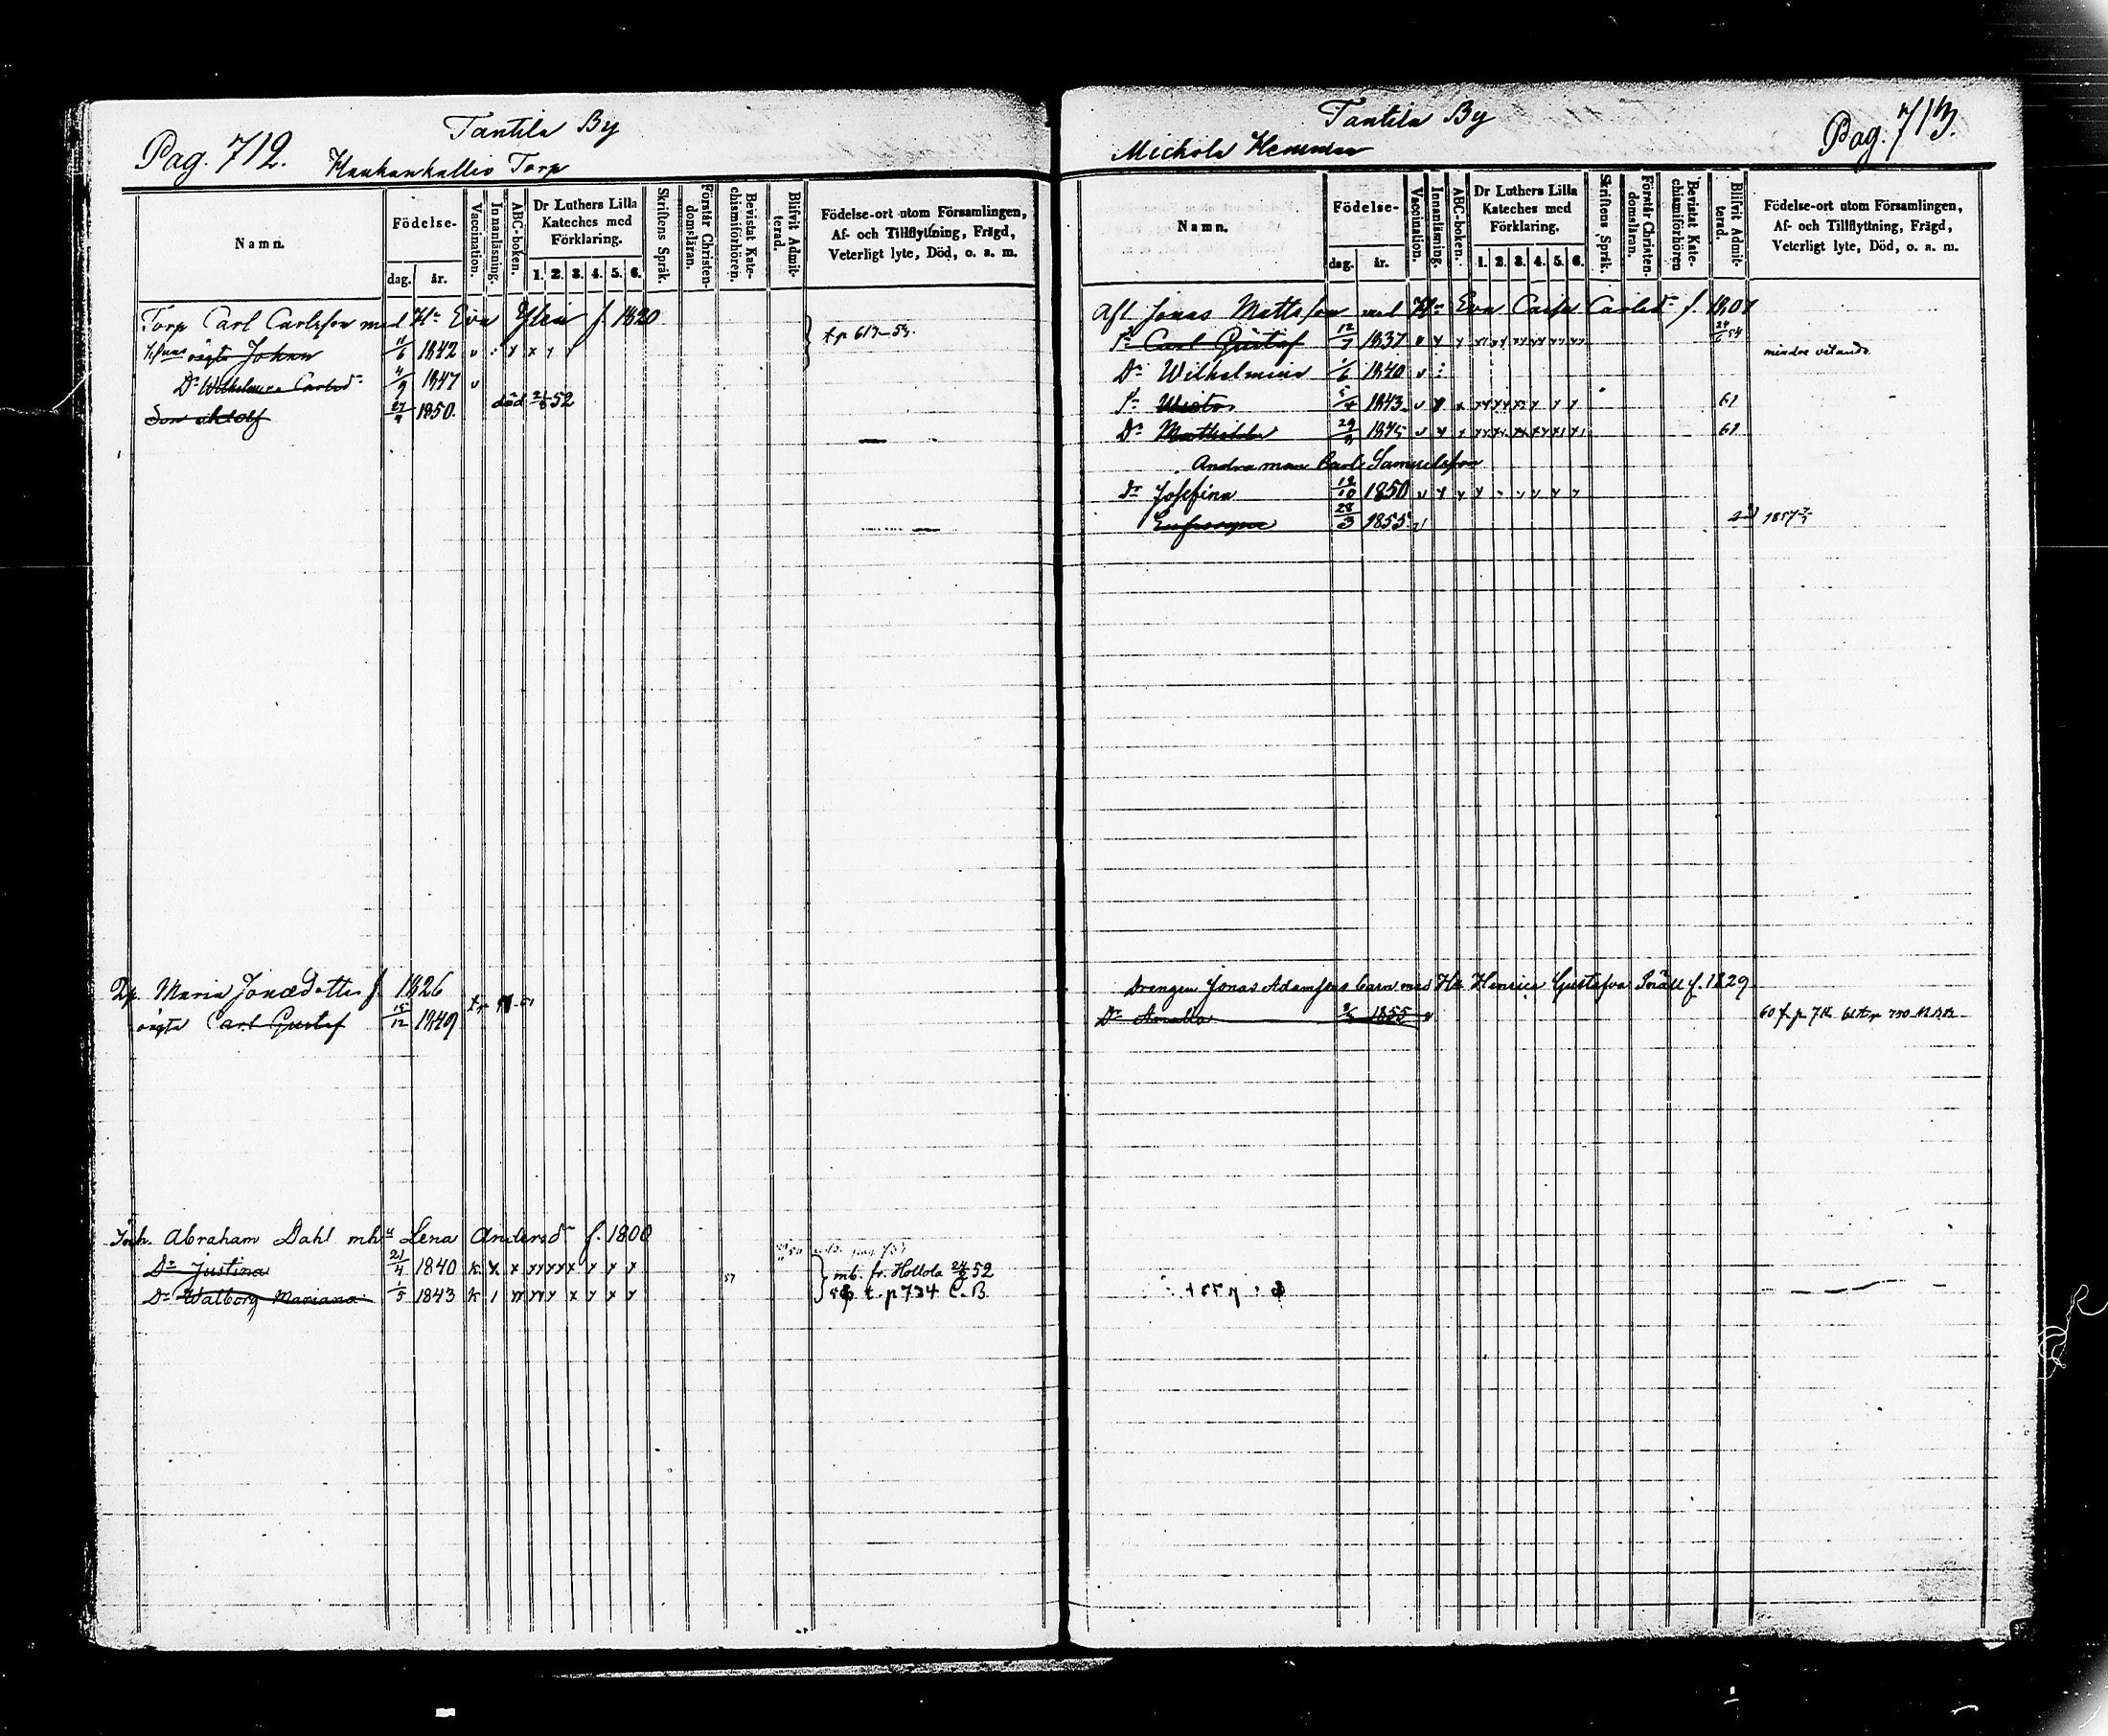 Pag. 712.
Tantila By
Haukankallio Torp
Namn.
Födelse-
dag. år.
Vaccination.
Innanläsning.
ABC-boken.
Dr Luthers Lilla Kateches med Förklaring.
1. 2. 3. 4. 5. 6.
Skriftens Språk.
Förstår Christendomsläran.
Bevistat Katechismiförhören.
Blifvit Admitterad.
Födelse-ort utom Församlingen,
Af- och Tillflyttning, Frägd,
Veterligt lyte, Död, o. a. m.
Torp Carl Carlsson med H. Eva f. 1820
oägta Johan 11/6 1842 v
t p 617-54.
Dr Wilhelmina Carlsdr 4/9 1847 v
Son Adolf 27/9 1850. död 52
Maria Jonædotter f. 1826
oägta Carl Gustaf 15/12 1849
Inh. Abraham Dahl m hu Lena Andersdr f. 1800
Dr Justina 21/4 1840 57 mb. fr. Hollola 52
Dr Walborg Mariana 1/5 1843 t. p 734 C. B.
Pag. 713.
Tantila By
Michola Hemman
Namn.
Födelse-
dag. år.
Vaccination.
Innanläsning.
ABC-boken.
Dr Luthers Lilla Kateches med Förklaring.
1. 2. 3. 4. 5. 6.
Skriftens Språk.
Förstår Christendomsläran.
Bevistat Katechismiförhören
Blifvit Admitterad.
Födelse-ort utom Församlingen,
Af- och Tillflyttning, Frägd,
Veterligt lyte, Död, o. a. m.
Afl Jonas Mattsson med Hu Eva Carlsdr f. 1807
Sn Carl Gustaf 12/7 1837 mindre vetande
Dr Wilhelmina 1/6 1840 v
Sn 5/4 1843 61
Dr Mathilda 1845 61
Andra man Carl Samuelsson
Dr Josefina 12/10 1850
28/3 1855 1857
Drengen Jonas Adamsons barn med Hu Henrica Gustafva f. 1829
Dr Amalia 1855